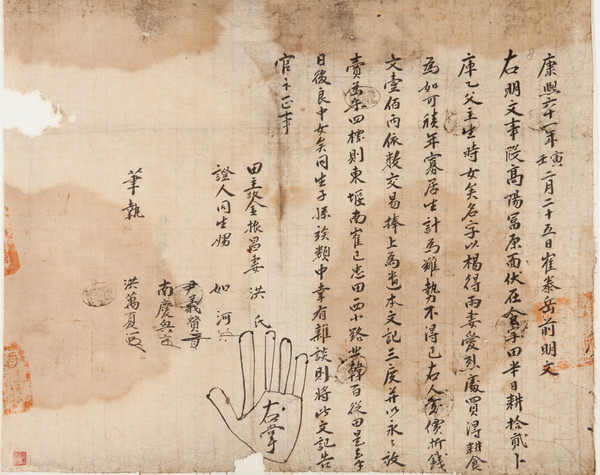 康熙六十一年壬寅二月二十五日崔泰岳前明文
右明文事段高陽富原面伏在金字田半日耕拾貳卜
庫乙父主生時女矣名字以楊得雨妻愛烈處買得耕食
為如可積年寡居生計為難勢不得已右人前價折錢
文壹佰兩依數交易捧上為遣本文記三度幷以永〻放
賣為乎四標則東堰南崔已忠田西小路北韓百從田是乎矣
日後良中女矣同生子孫族類中幸有雜談則將此文記告
官卞正事
田主故金振昌妻 洪氏
右掌
證人同生娚 如河
尹義賛
南慶興
筆執 洪萬夏